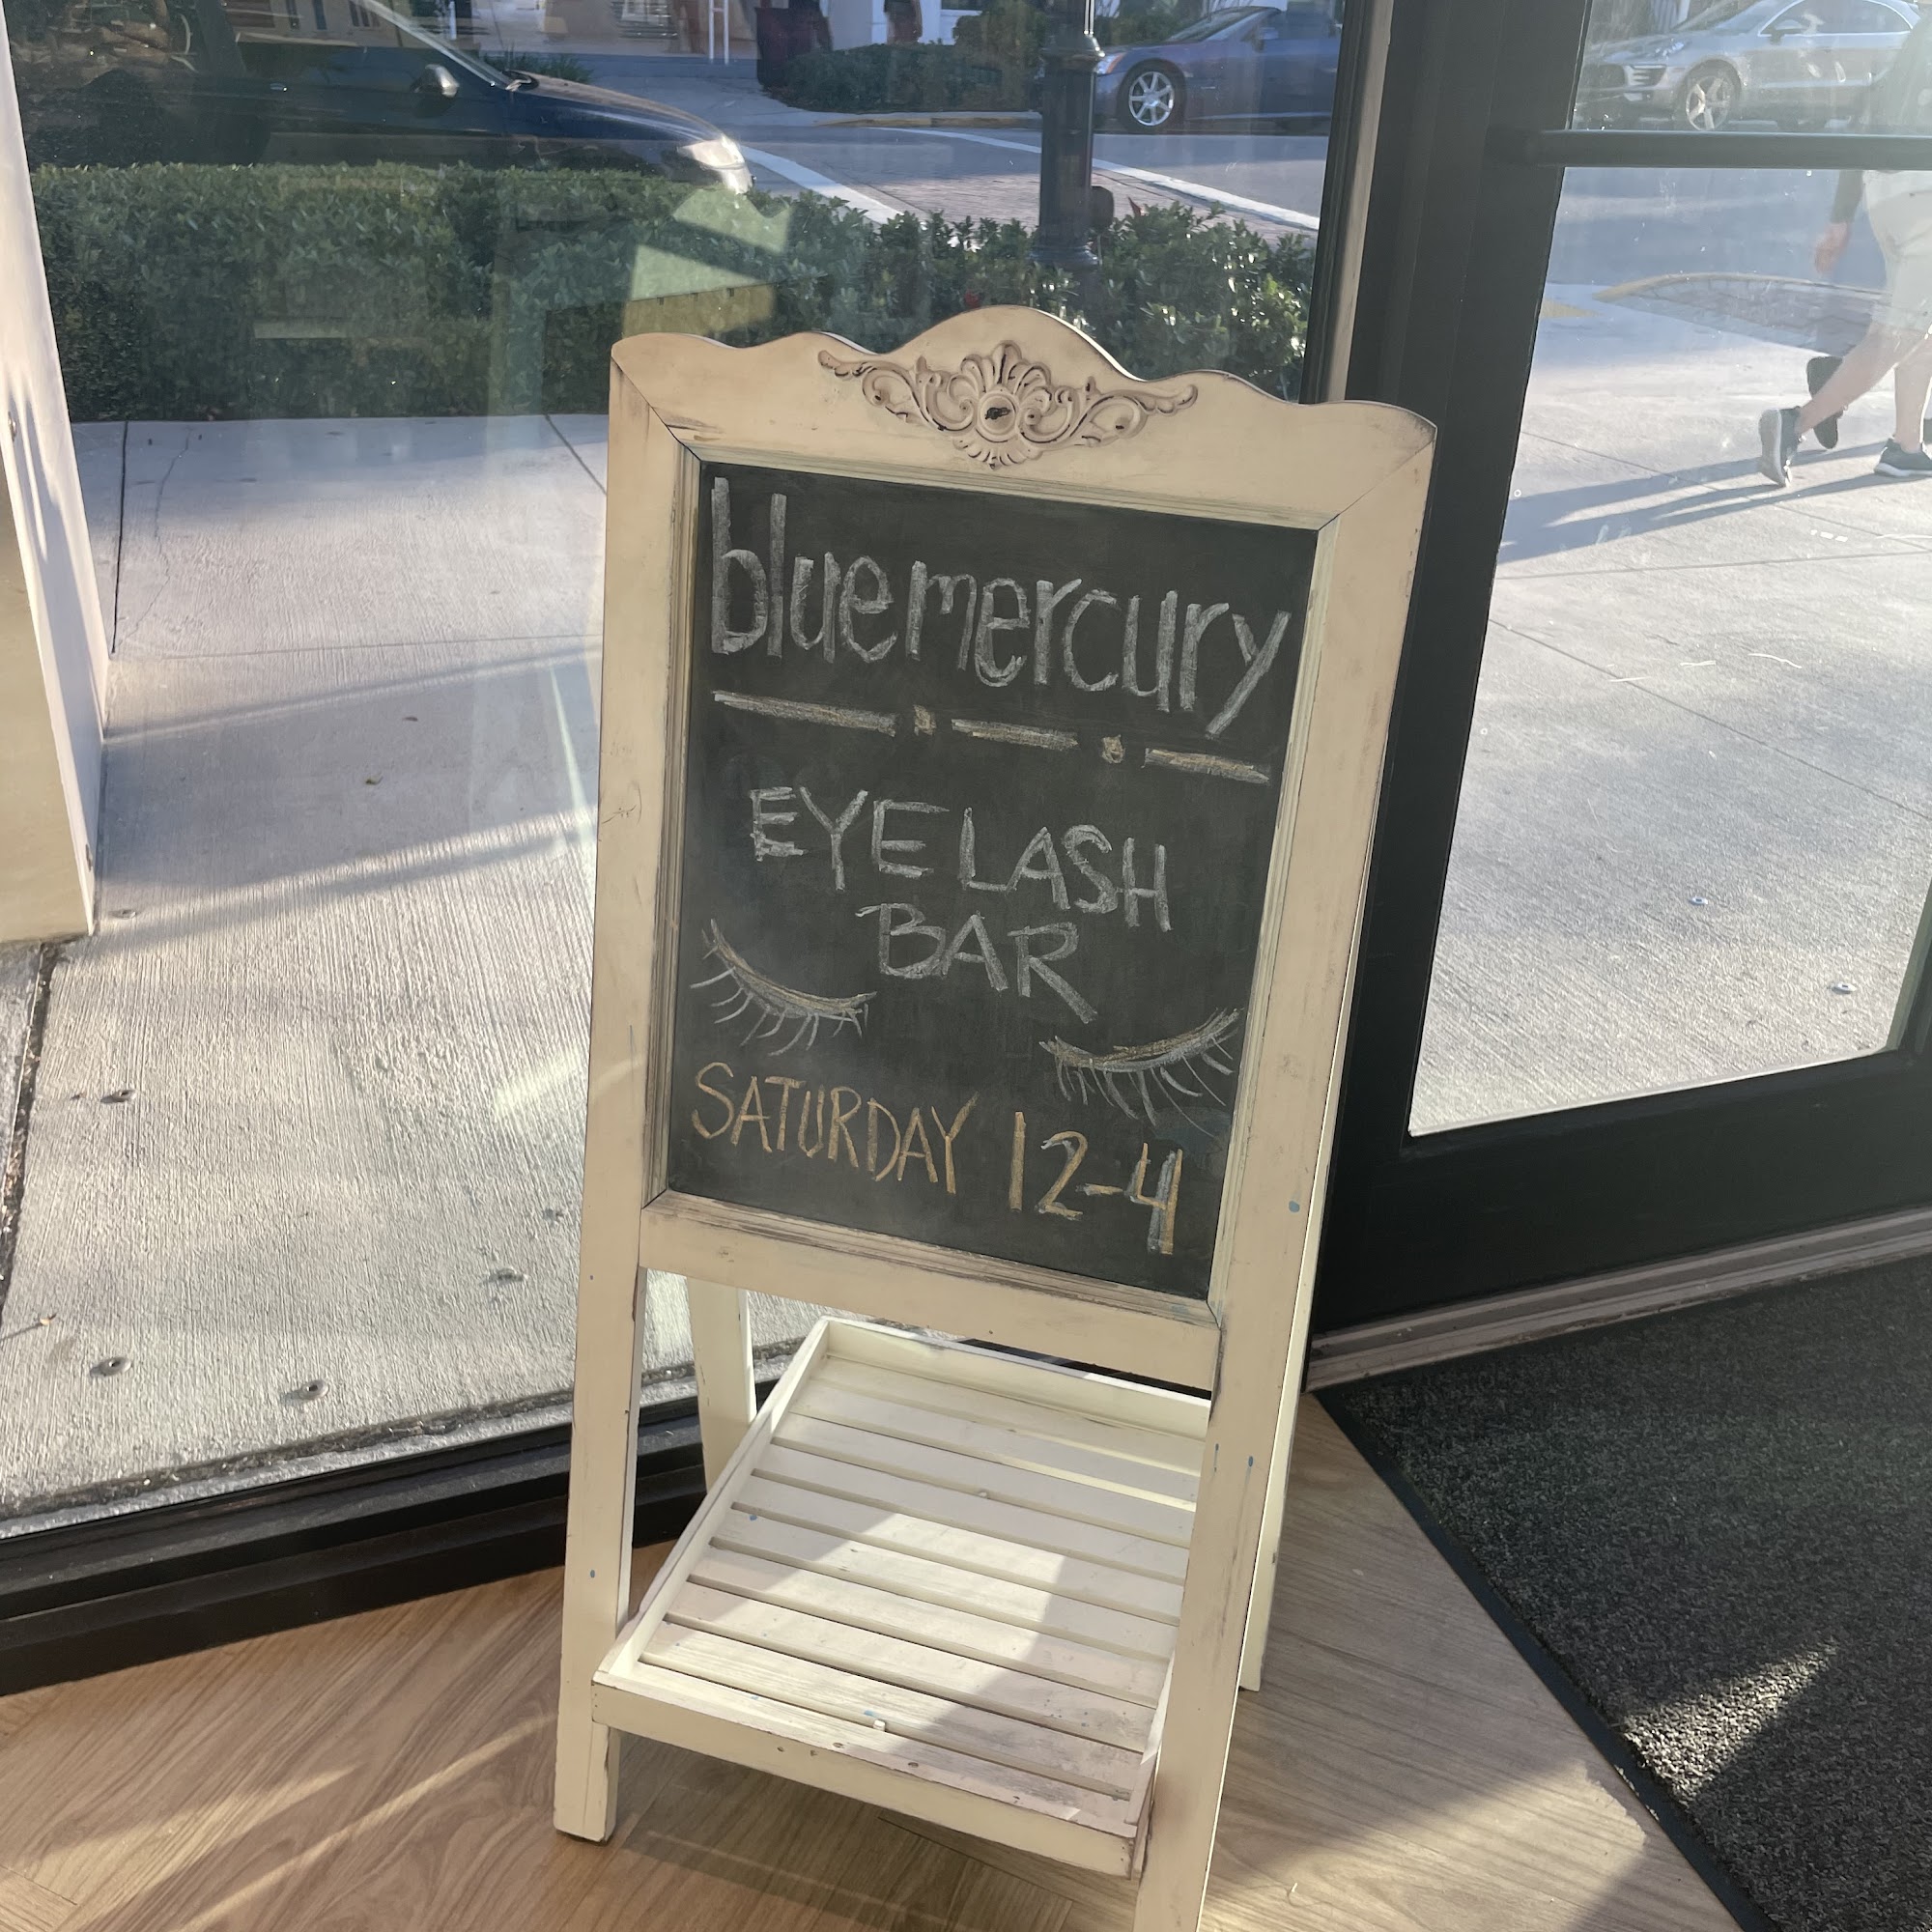 bluemercury
EYELASH
BAR
SATURDAY 12-4